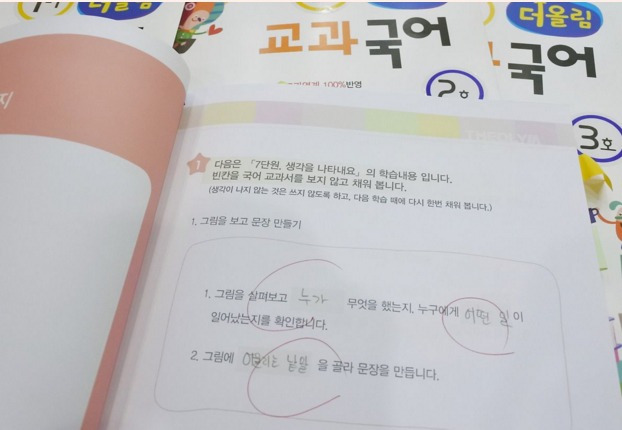 더올림
더올림
교과국어
국어
100%반영
2호
3호
지
1 다음은 「7단원, 생각을 나타내요」의 학습내용 입니다.
빈칸을 국어 교과서를 보지 않고 채워 봅니다.
(생각이 나지 않는 것은 쓰지 않도록 하고, 다음 학습 때에 다시 한번 채워 봅니다.)
1. 그림을 보고 문장 만들기
1. 그림을 살펴보고 누가 무엇을 했는지, 누구에게 어떤 일이
일어났는지를 확인합니다.
2. 그림에 어울리는 낱말 을 골라 문장을 만듭니다.